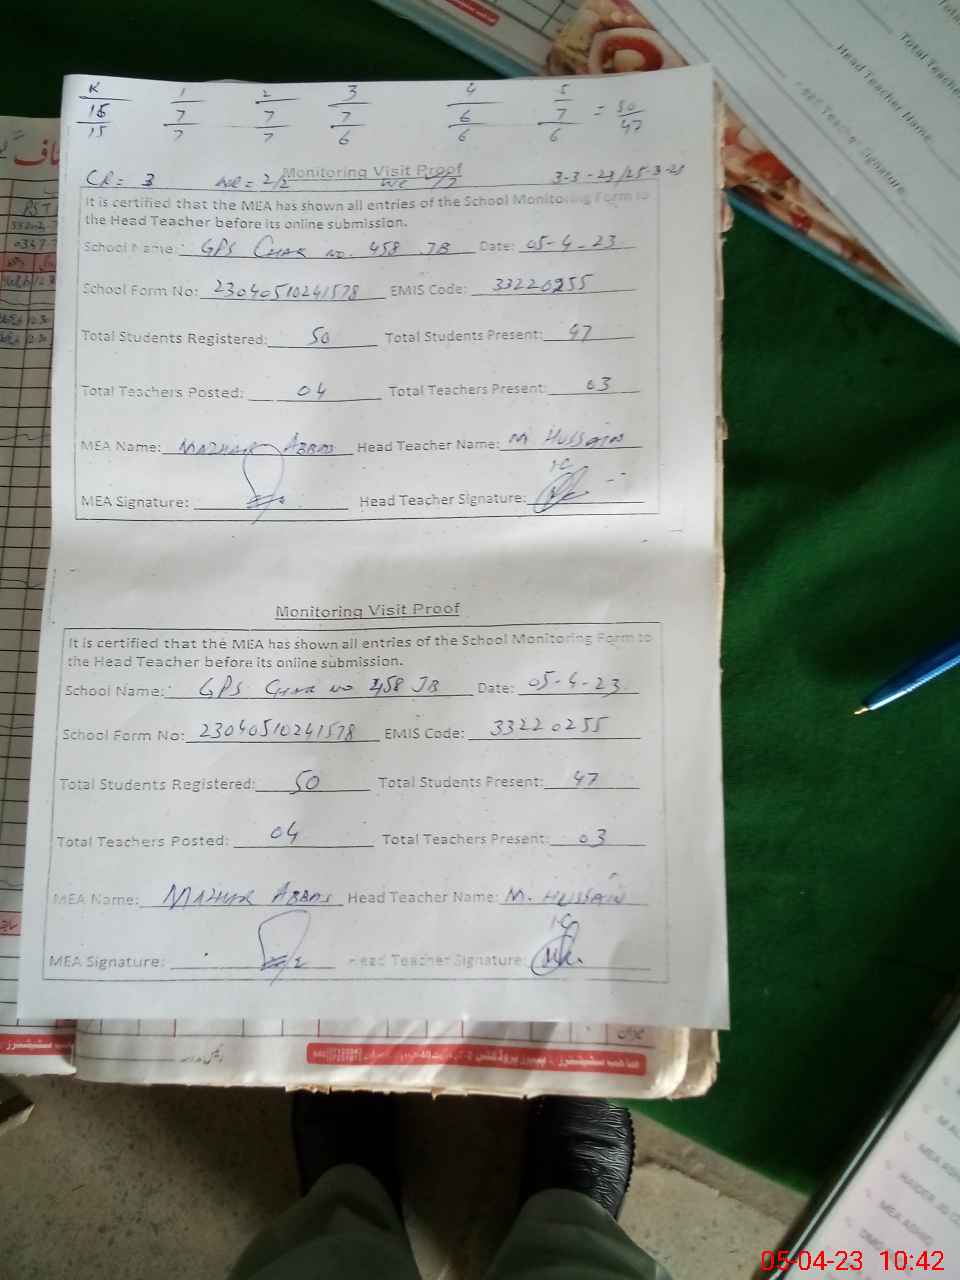 K 1 2 3 4 5
15 7 7 7 6 7 = 50
15 7 7 6 6 6 47
CR = 3 WR = 2/2 WC 3-3-23/25-3-23
Monitoring Visit Proof
It is certified that the MEA has shown all entries of the School Monitoring Form to
the Head Teacher before its online submission.
School Name: GPS CHAK NO. 458 JB Date: 05-4-23
School Form No: 23040510241578 EMIS Code: 33220255
Total Students Registered: 50 Total Students Present: 47
Total Teachers Posted: 04 Total Teachers Present: 03
MEA Name: MAZHAR ABBAS Head Teacher Name: M. HUSSAIN
MEA Signature: Head Teacher Signature:
Monitoring Visit Proof
It is certified that the MEA has shown all entries of the School Monitoring Form to
the Head Teacher before its online submission.
School Name: GPS CHAK NO 458 JB Date: 05-4-23
School Form No: 23040510241578 EMIS Code: 33220255
Total Students Registered: 50 Total Students Present: 47
Total Teachers Posted: 04 Total Teachers Present: 03
MEA Name: MAZHAR ABBAS Head Teacher Name: M. HUSSAIN
MEA Signature: Head Teacher Signature:
Total Teachers
Head Teacher Name
Teacher Signature:
میزان
MEA ASH
HAIDER
MEA ASHIQ
05-04-23 10:42